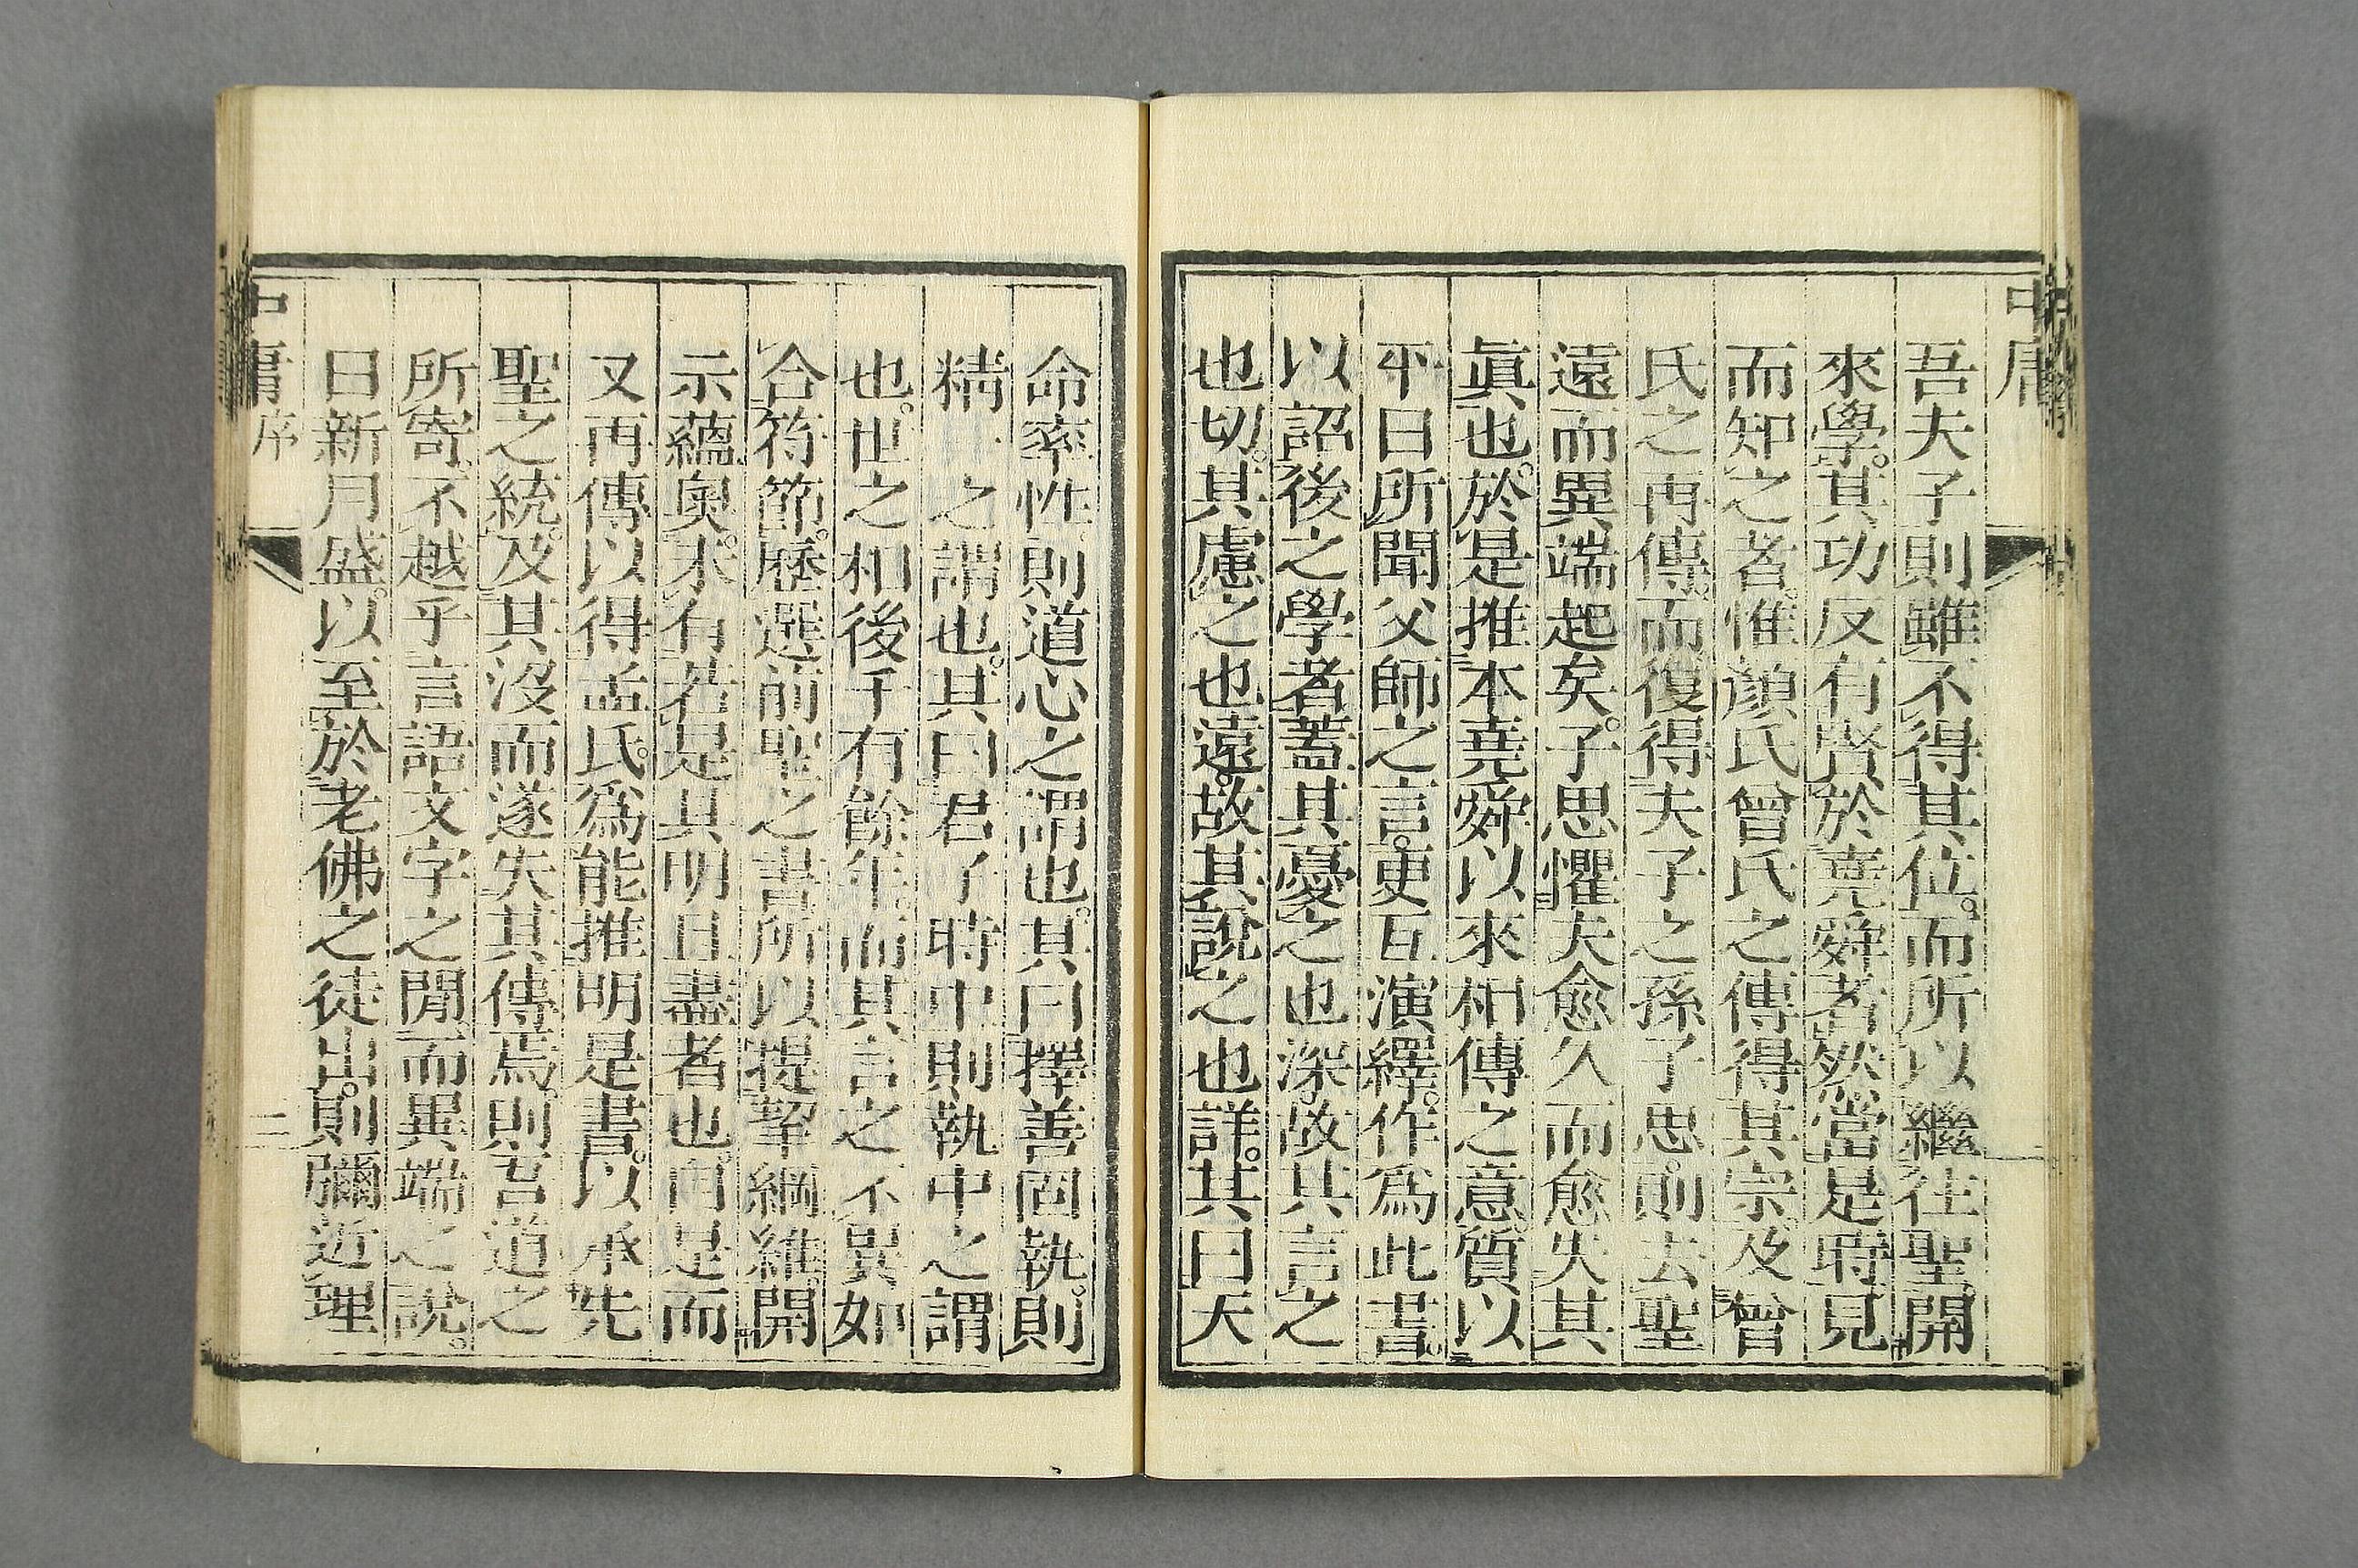 中庸
吾夫子則雖不得其位。而所以繼往聖。開
來學。其功反有賢於堯舜者。然當是時。見
而知之者。惟顏氏曾氏之傳得其宗。及曾
氏之再傳。而復得夫子之孫子思。則去聖
遠而異端起矣。子思懼夫愈久而愈失其
眞也。於是推本堯舜以來相傳之意。質以
平日所聞父師之言。更互演繹。作爲此書。
以詔後之學者。蓋其憂之也深。故其言之
也切。其慮之也遠。故其說之也詳。其曰天
命率性。則道心之謂也。其曰擇善固執。則
精一之謂也。其曰君子時中。則執中之謂
也。世之相後。千有餘年。而其言之不異。如
合符節。歷選前聖之書。所以提挈綱維。開
示蘊奧。未有若是其明且盡者也。自是而
又再傳以得孟氏。爲能推明是書。以承先
聖之統。及其沒而遂失其傳焉。則吾道之
所寄。不越乎言語文字之閒。而異端之說。
日新月盛。以至於老佛之徒出。則彌近理
中庸 序 三